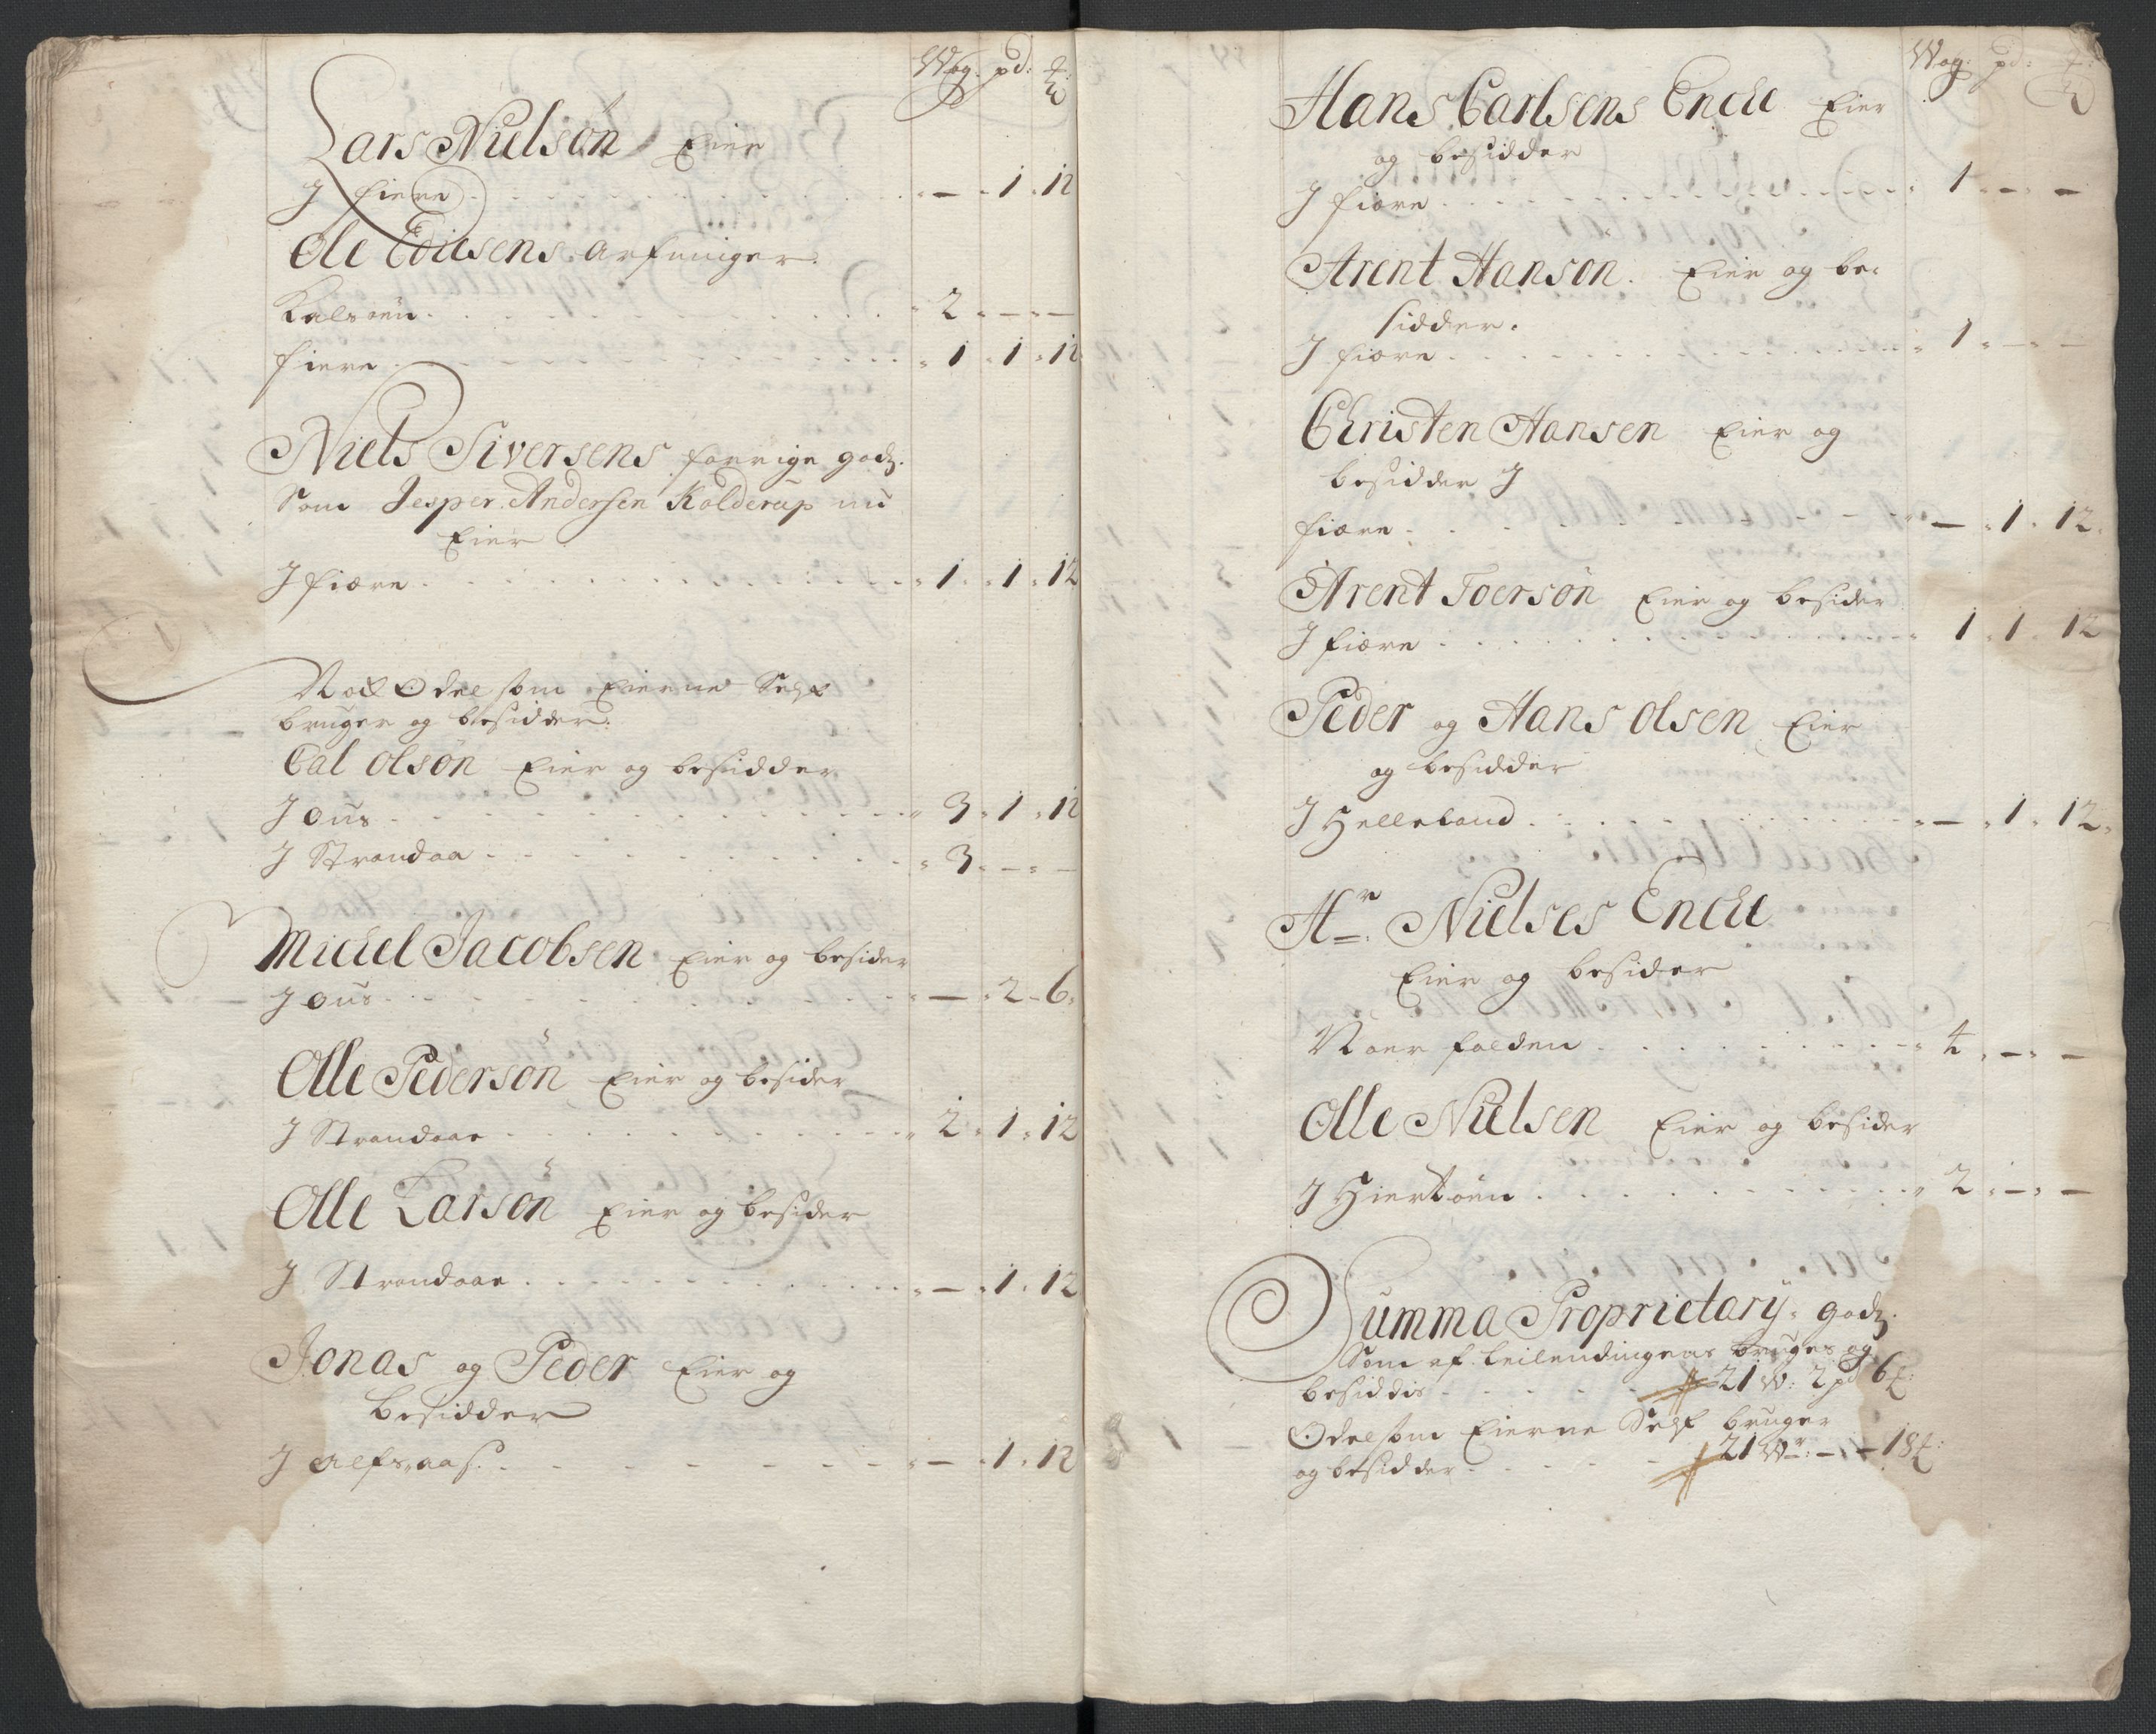 Wog. pd: ℔
Lars Nielsön Eier
J fiere - 1 12
Ole Ediisens arfvinger
Kalvöen 2 - -
fiere 1 1 12
Niels Siversens forrige godtz
Som Jesper Andersen Kolderup nu
Eier
J fiære 1 1 12
Noch Odel som Eierne Self
bruger og besidder
Cal Olsön Eier og besidder
J Ous 3 1 12
J Strandaa 3 - -
Michel Jacobsen Eier og besider
J Ous - 2 6
Olle Pedersön Eier og besider
J Strandaae 2 1 12
Olle Larsön Eier og besider
J Strandaae - 1 12
Jonas og Peder Eier og
besidder
J Alfsnaas - 1 12
Wog: pd: ℔
Hans Carlsens Encke Eier
og besidder
J fiære 1 - -
Arent Hansön Eier og be-
sidder.
J fiære 1 - -
Christen Hansen Eier og
besidder J
fiære - 1 12
Arent Toersön Eier og besider
J fiære 1 1 12
Peder og Hans Olsen Eier
og besidder
J Helleland - 1 12
Hr. Nielses Encke
Eier og besider
Noer folden 4 - -
Olle Nielsen Eier og besider
J Hiertöen 2 - -
Summa Proprietary godtz.
Som af Leilendingene bruges og
besiddis 21 W: 2 pd 6 ℔:
Odel som Eierne Self bruger
og besidder 21 Wr: - 18 ℔: